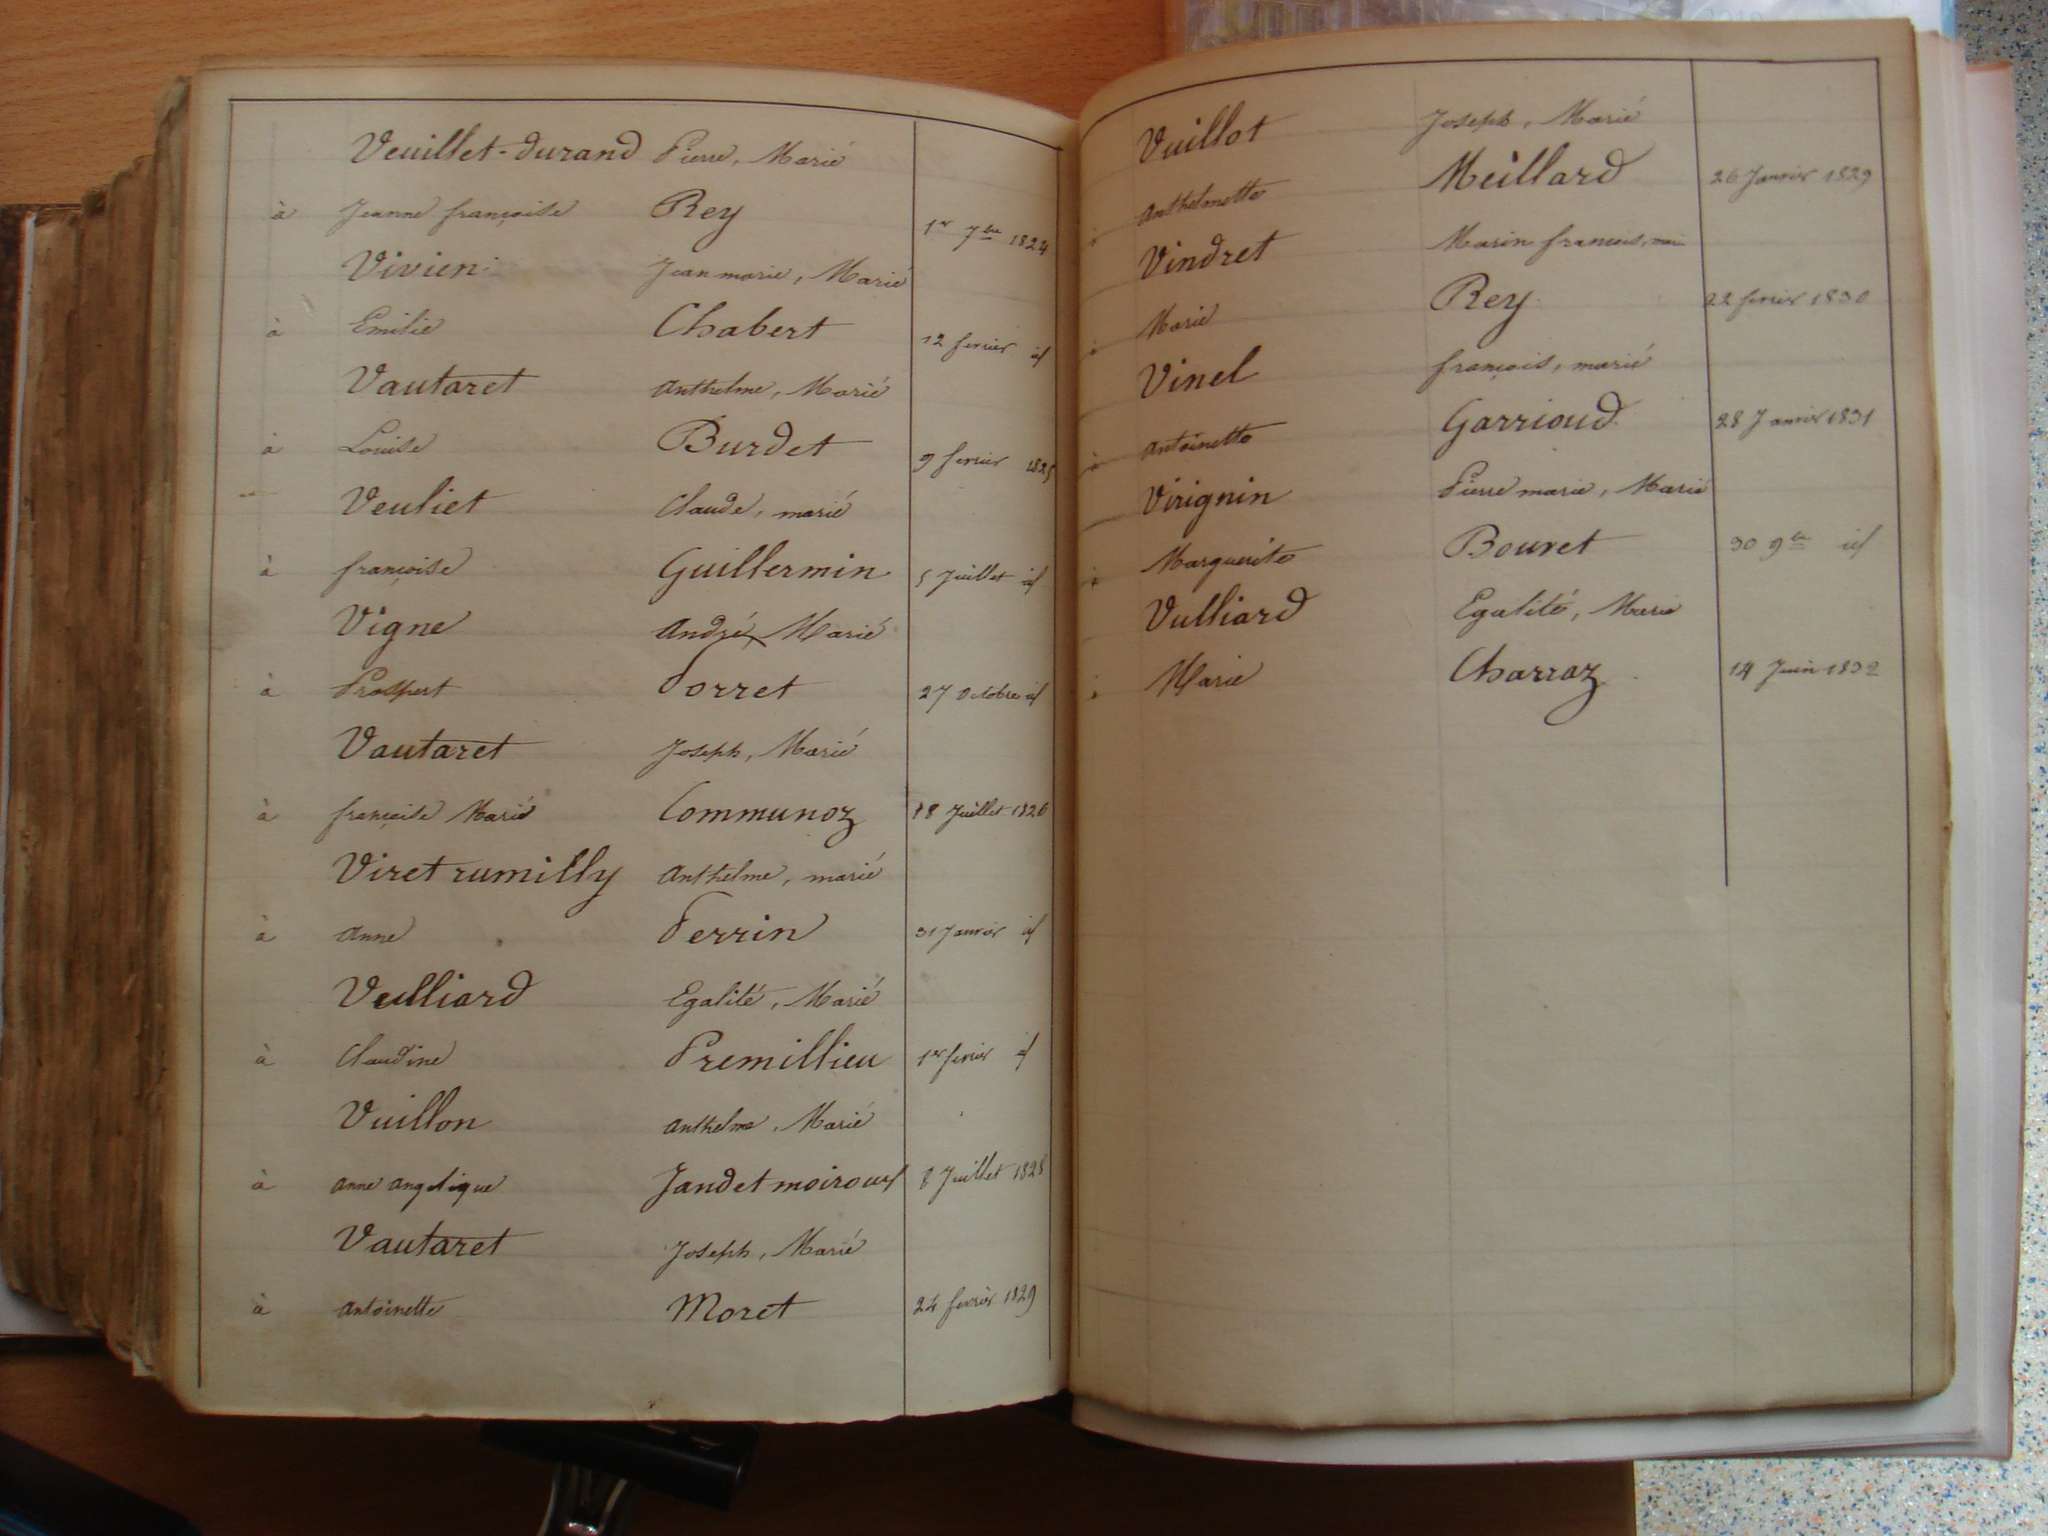 Veuillet-durand Pierre, Marié
à Jeanne françoise Rey 1er 7bre 1824
Vivien Jean marie, Marié
à Emilie Chabert 12 fevrier id
Vautaret Anthelme, Marié
à Louise Burdet 9 fevrier 1825
Veuliet Claude, marié
à françoise Guillermin 5 Juillet id
Vigne André, Marié
à Prospert Porret 27 Octobre id
Vautaret Joseph, Marié
à françoise Marie Communoz 18 Juillet 1826
Viret rumilly Anthelme, marié
à Anne Perrin 31 Janvier id
Vulliard Egalité, Marié
à Claudine Premillieu 1er fevrier id
Vuillon Anthelme, Marié
à anne angelique Jandet moiroud 8 Juillet 1828
Vautaret Joseph, Marié
à Antoinette Moret 24 fevrier 1829
Vuillot Joseph, Marié
à Anthelmette Meillard 26 Janvier 1829
Vindret Marin francois, marié
à Marie Rey 22 fevrier 1830
Vinel françois, marié
à Antoinette Garrioud 28 Janvier 1831
Virignin Pierre marie, Marié
à Marguerite Bouvet 30 9bre id
Vulliard Egalité, Marié
à Marie Charroz 14 Juin 1832